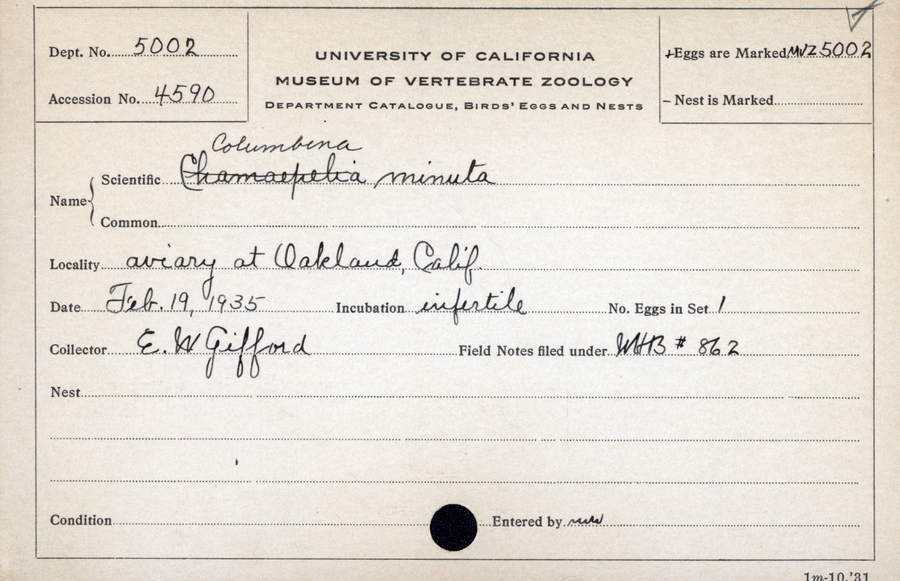 Dept. No. 5002
Accession No. 4590
UNIVERSITY OF CALIFORNIA
MUSEUM OF VERTEBRATE ZOOLOGY
DEPARTMENT CATALOGUE, BIRDS' EGGS AND NESTS
+Eggs are Marked MVZ 5002
– Nest is Marked
Columbina
Name Scientific Chamaepelia minuta
Common
Locality aviary at Oakland, Calif.
Date Feb. 19, 1935 Incubation infertile No. Eggs in Set 1
Collector E. W Gifford Field Notes filed under WHB # 862
Nest
Condition Entered by
1m-10,'31